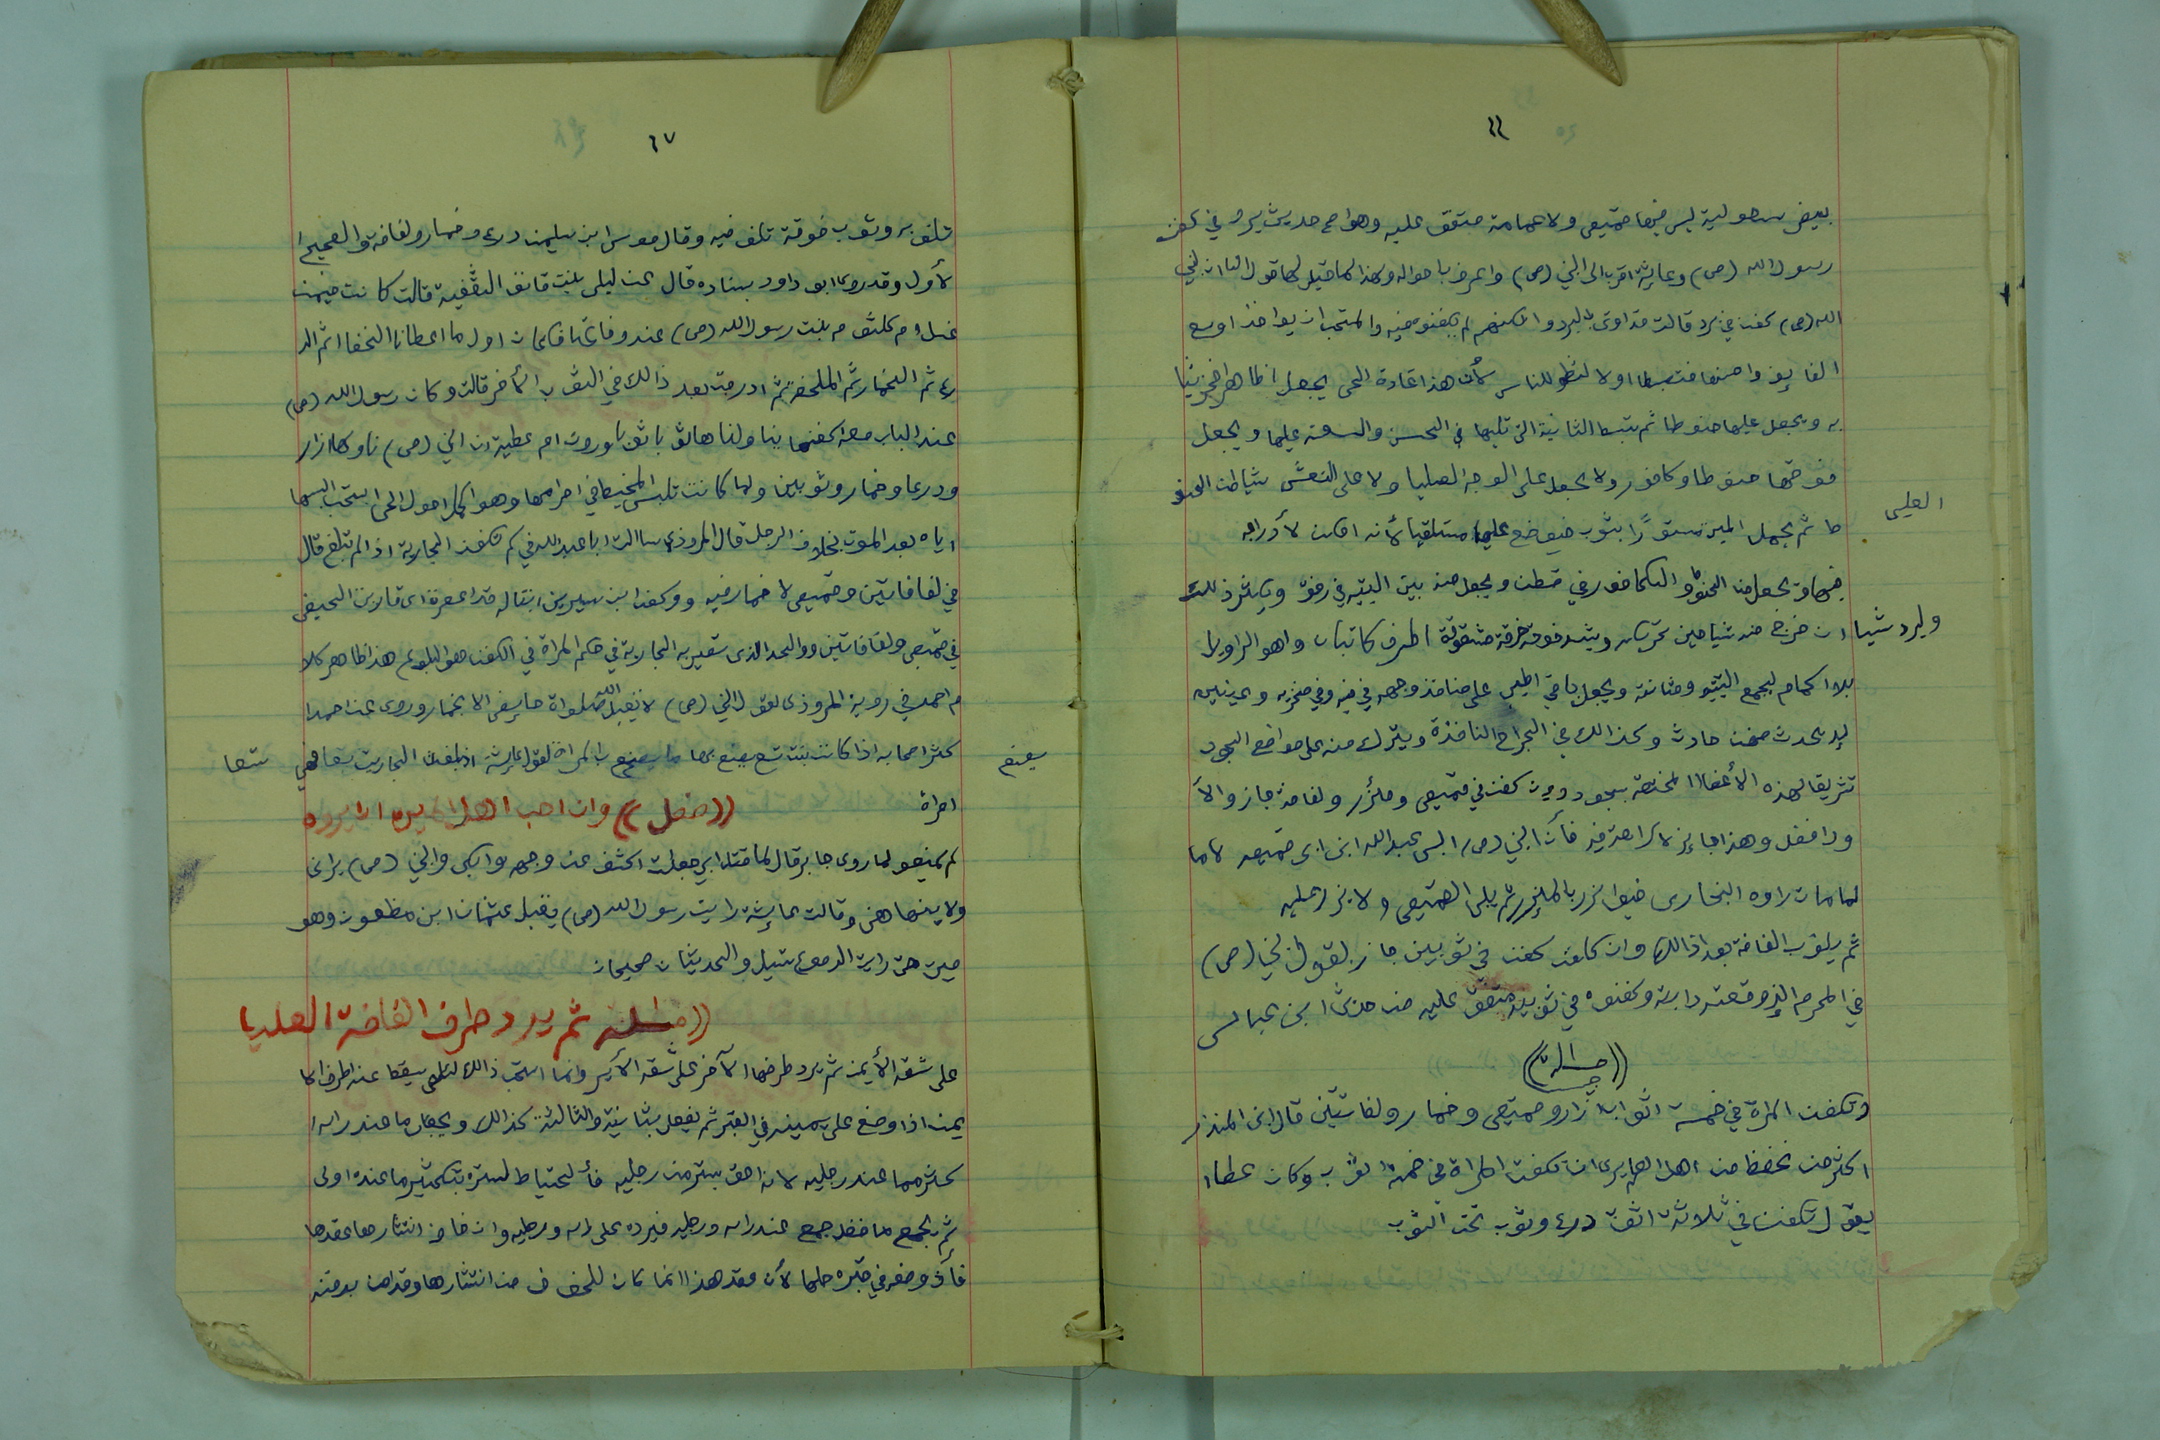 ١١
بيض سحولية ليس فيها قميص ولا عمامة متفق عليه وهو اصح حديث يروى في كفن
رسول الله (ص) وعايشة اقرب الى النبي (ص) واعرف باحواله ولهذا لما قيل لها قول الناس ان النبي
الله (ص) كفن في برد قالت قد اوتي بالبرد ولكنهم لم يكفنوه فيه والمستحب ان يواخذ اوسع
الفايف واحسنها فتبسط اولا لتظهر للناس لأن هذا عادة الحى يجعل الظاهر افخر ثيا
به ويجعل عليها حنوطا ثم تبسط الثانية التي تليها في الحسن والسعة عليها ويجعل
فوقها حنوطا وكافور ولا يجعل على الوجه العليا ولا على النعش شيا من الحنو
العليى
طا ثم يحمل الميت مستورًا بثوب فيوضع عليها مستلقيا لأنه امكن لأدراجه
فيها ويجعل من الحنوط والكافور في قطن ويجعل منه بين اليتيه في رفق ويكثر ذلك
وليرد شيا ان خرج منه شيا حين تحريكه ويشد فوقه خرقة مشقوقة الطرف كا تبان واهو السراويل
بلا اكمام ليجمع اليتيو ومثانته ويجعل باقي الطيب على منافذ وجهه في فيه وفي منخريه وعينيه
ليلا يحدث منهن حادث وكذالك في الجراح النافذة ويترك منه على مواضع السجود
تشريفا لهذه الأعضا المختصة بسجود وإن كفن في قميص ومئزر ولفافة جاز والأ
ول افضل وهذا جايز لا كراهة فيه فأن النبي (ص) البس عبدالله ابن ابي قميصه
لما مات رواه البخاري فيؤزر بالمئزر ثم يلبس القميص ولا يزر عليه
ثم يلف الفافة بعد ذالك وان كفن في ثوبين جاز لقول النبي (ص)
في المحرم الذي وقصته دابته وكفنوه في ثوبيه متفق عليه من حديث ابن عباس
((مسالة))
وتكفن المراة في خمسة اثواب ازار وقميص وخمار ولفافتين قال ابن المنذر
اكثر من نحفظ من اهل العلم يرى ان تكفن المراة في خمسة اثواب وكان عطا
يقول تكفن في ثلاثة اثواب درع وثوب تحت الثوب
١٧
تلف به وثوب فوقه تلف فيه وقال موسى ابن سليمن درع وخمار ولفافة والصحيح ا
لأول وقد روى ابو داود بسناده قال عن ليلى بنت قانف الثقفية قالت كانت فيمن
غسل ام كلثوم بنت رسول الله (ص) عند وفاتها فكان اول ما اعطانا الحقا ثم الد
رع ثم الخمار ثم الملحفة ثم ادرجت بعد ذالك في الثوب الأخر قالت وكان رسول الله (ص)
عند الباب معه كفنها يناولناها ثوبا ثوبا وروت ام عطية ان النبي (ص) ناولها ازار
ودرعا وخمار وثوبين ولما كانت تلبس المخيط في احرامها وهو اكمل احوال الحى استحب البسها
اياه بعد الموت بخلاف الرجل قال المروذي سالت ابا عبدالله في كم تكفن الجارية اذا لم تبلغ قال
في لفافتين وقميص لا خمار فيه وكفن ابن سيرين ابنتا له قد اعصرة اى قاربت الحيض
في قميص ولفافتين والحد الذي تصير به الجارية في حكم المراة في الكفن هو البلوغ هذا ظاهر كلا
م احمد في رواية المروذي لقول النبي (ص) لا يقبل الله صلواة حايض الا بخمار وروى عن احمد ا
كثر اصحابه اذا كانت بنت تسع يصنع بها ما يصنع بالمراة لقول عايشة اذ بلغت الجارية تسعا فهي
يصنع
تسعا
امراة ((فصل)) وان احب اهل الميت ان يروه
لم يمنعو لما روى جابر قال لما قتل ابي جعلت اكشف عن وجهه وابكي والنبي (ص) يراني
ولا ينهاهني وقالت عايشة رايت رسول الله (ص) يقبل عثمان ابن مظعون وهو
ميت حتى رايت الدموع تسيل والحديثان صحيحان
((مسلة ثم يرد طرف الفافة العليا
على شقه الأيمن ثم يرد طرفها الآخر على شقه الأيسر وانما استحب ذالك لئلى يسقط عنه الطرف الا
يمن اذا وضع على يمينه في القبر ثم يفعل بثانية والثالثة كذالك ويجعل ما عند راسه ا
كثر مما عند رجليه لانه احق بستر من رجليه فألحتياط لستره بتكثير ما عنده اولى
ثم يجمع ما فضل جمع عند راسه ورجليه فيرده على راسه ورجليه وان خاف انتثارها عقدها
فأذ وضعه في قبره حلها لأن عقد هذا انما كان للخوف من انتثارها وقد امن بدفنه